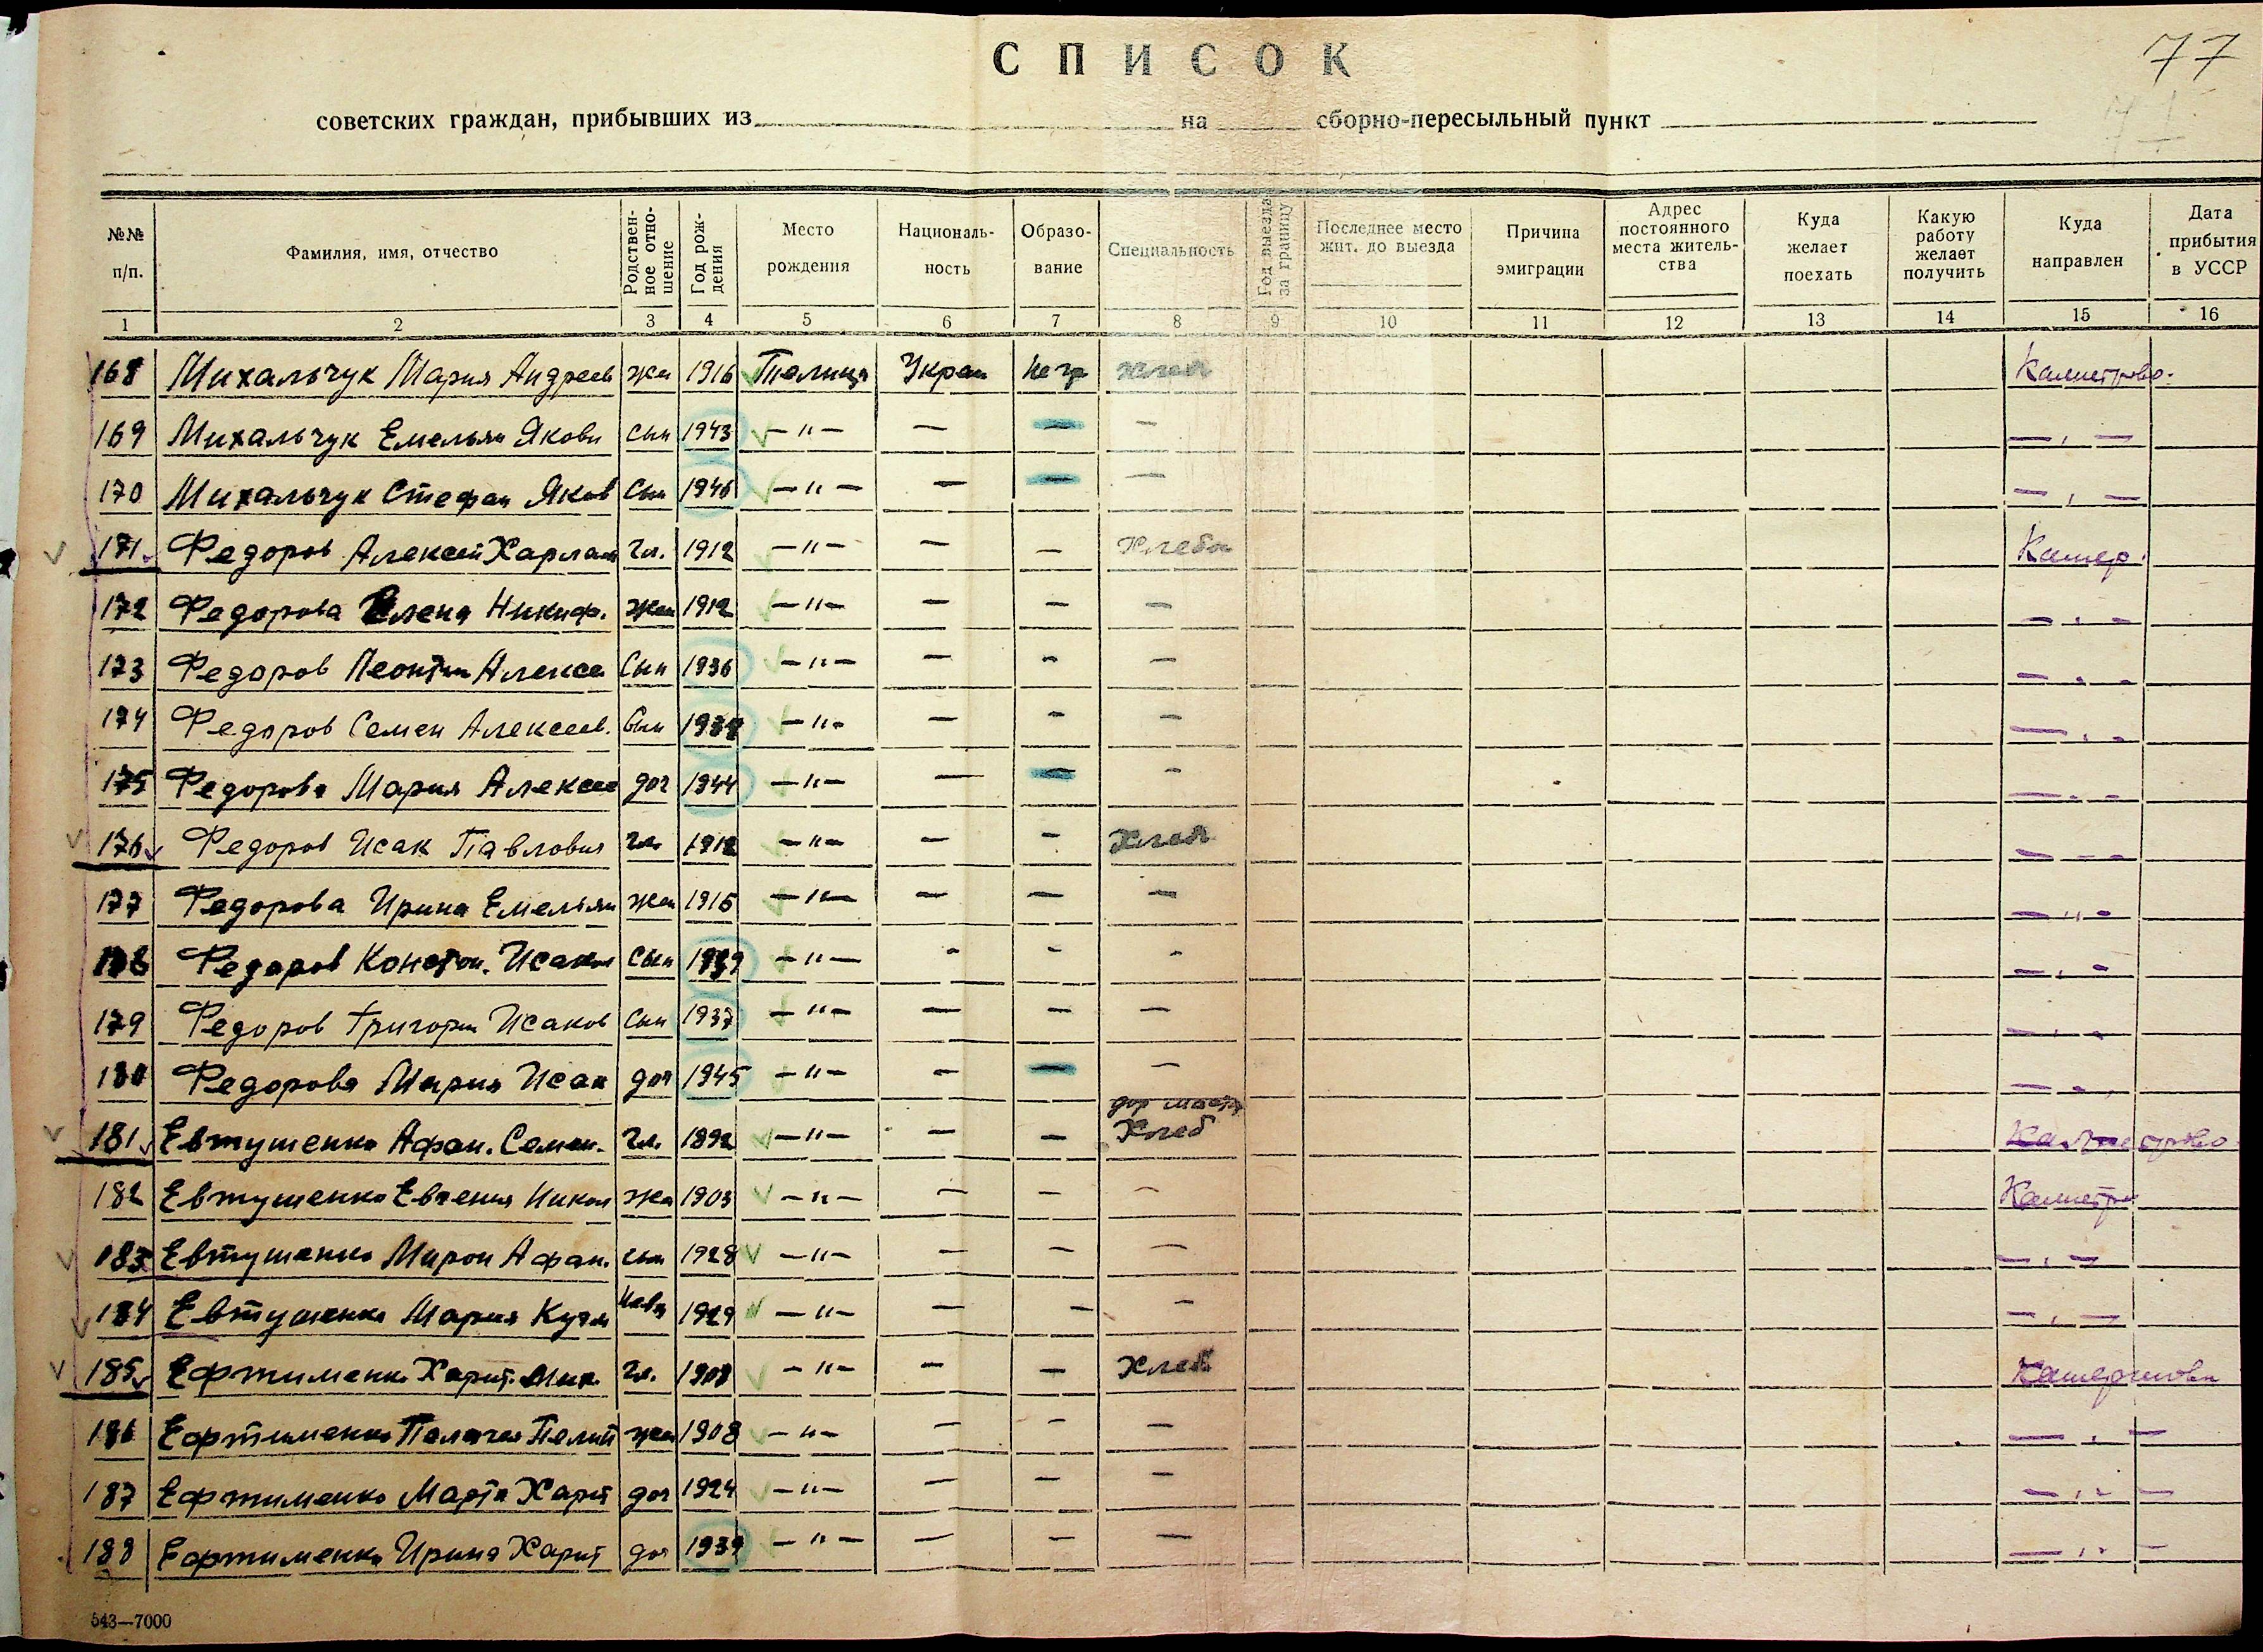 77
СПИСОК
советских граждан, прибывших из на сборно-пересыльный пункт
№№ п/п. Фамилия, имя, отчество Родственное отношение Год рождения Место рождения Националь-ность Образо-вание Специальность Год выезда за границу Последнее место жит. до выезда Причина эмиграции Адрес постоянного места житель-ства Куда желает поехать Какую работу желает получить Куда направлен Дата прибытия в УССР
1 2 3 4 5 6 7 8 9 10 11 12 13 14 15 16
168 Михальчук Мария Андреев жен 1916 Украи Негр Хлеб
169 Михальчук Емельян Яковл сын 1943 -"- — — — -"-
170 Михальчук Стефан Яков сын 1946 -"- — — — -"-
171 Федоров Алексей Харлам гл. 1912 -"- — — Хлебо
172 Федорова Елена Никиф. жен 1912 -"- — — — -"-
173 Федоров Леонтий Алексе сын 1936 -"- — — — -"-
174 Федоров Семен Алексеев. сын -"- — — — -"-
175 Федорова Мария Алексее доч 1944 -"- — — — -"-
176 Федоров Исак Павлович гл. 1912 -"- — — Хлеб -"-
177 Федорова Ирина Емельян жен -"- — — — -"-
178 Федоров Констан. Исаков сын -"- — — — -"-
179 Федоров Григорий Исаков сын 1937 -"- — — — -"-
180 Федорова Мария Исак доч 1945 -"- — — — -"-
181 Евтушенко Афан. Семен. гл. 1892 -"- — — Хлеб
182 Евтушенко Евгения Никол жен 1903 -"- — — —
183 Евтушенко Мирон Афан. сын 1928 -"- — — — -"-
184 Евтушенко Мария Кузм 1929 -"- — — — -"-
185 Ефтименко Харит. гл. -"- — — Хлеб
186 Ефтименко Пелагея жен 1908 -"- — — — -"-
187 Ефтименко Марта Харит доч 1924 -"- — — — -"-
188 Ефтименко Ирина Харит доч 1939 -"- — — — -"-
543—7000